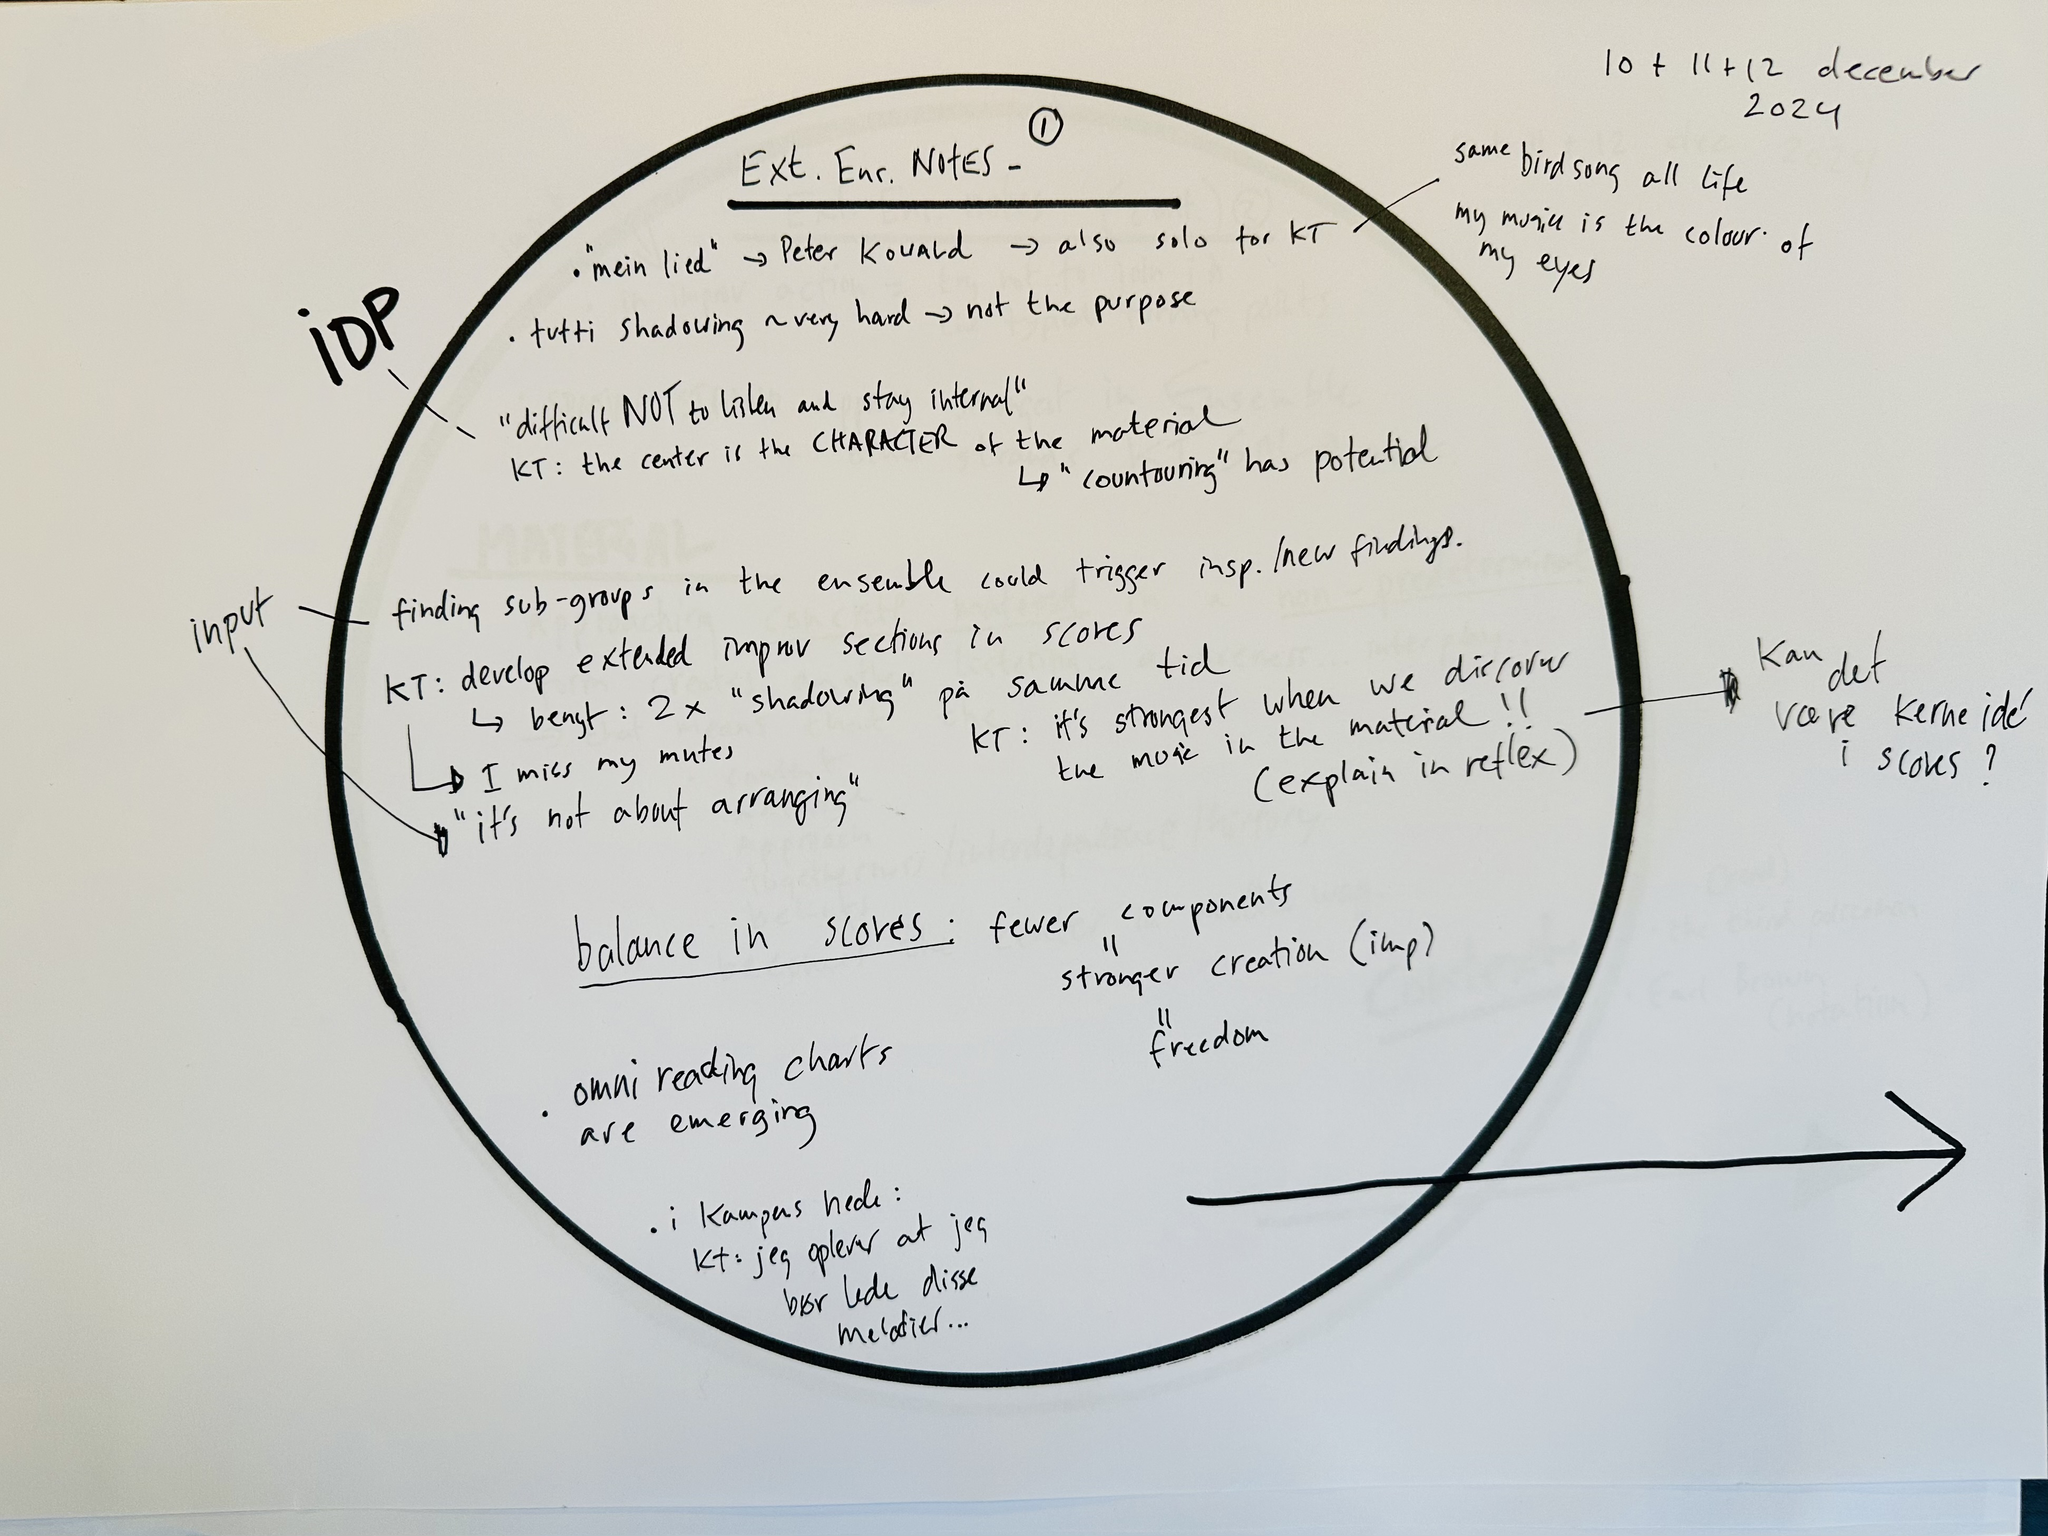 10 + 11 + 12 december
2024
Ext. Ens. NOTES - ①
• "mein lied" → Peter Kowald → also solo for KT
same birdsong all life
my music is the colour of
my eyes
• tutti shadowing ~ very hard → not the purpose
IDP
"difficult NOT to listen and stay internal"
KT: the center is the CHARACTER of the material
↳ "countouring" has potential
input
finding sub-groups in the ensemble could trigger insp./new findings.
KT: develop extended improv sections in scores
↳ bengt: 2 x "shadowing" på samme tid
↳ I miss my mutes
"it's not about arranging"
KT: it's strongest when we discover
the music in the material!!
(explain in reflex)
Kan det
være kerneidé
i scores?
balance in scores: fewer components
=
stronger creation (imp)
=
freedom
• omni reading charts
are emerging
• i Kampens hede:
KT: jeg oplever at jeg
bør lede disse
melodier...